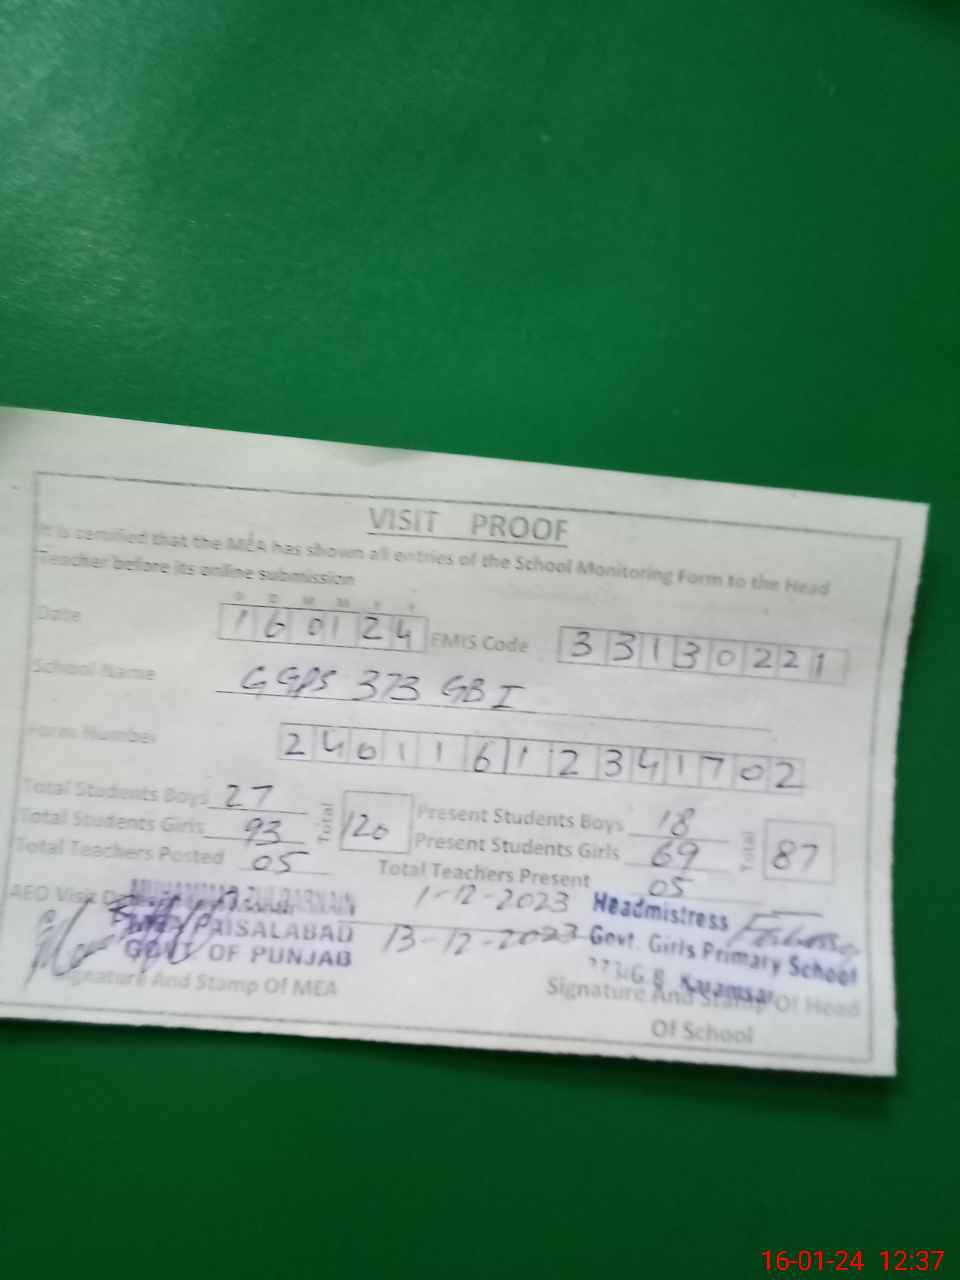 VISIT PROOF
It is certified that the MEA has shown all entries of the School Monitoring Form to the Head
Teacher before its online submission
D D M M Y Y
Date 160124 EMIS Code 33130221
School Name GGPS 373 GB I
Form Number 24011612341702
Total Students Boys 27 Total 120 Present Students Boys 18 Total 87
Total Students Girls 93 Present Students Girls 69
Total Teachers Posted 05 Total Teachers Present 05
AEO Visit 1-12-2023 Headmistress
FAISALABAD 13-12-2023 Govt. Girls Primary School
GOVT OF PUNJAB G.B.
Signature And Stamp Of MEA Signature And Stamp Of Head
Of School
16-01-24 12:37